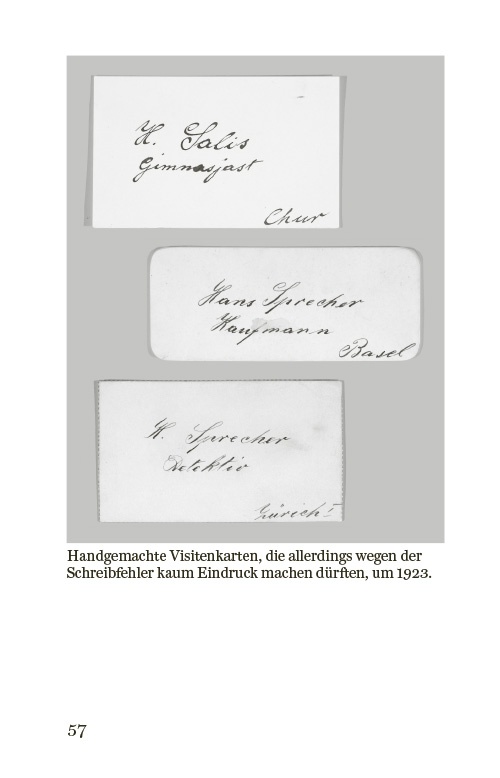 H. Salis
Gimnasjast
Chur
Hans Sprecher
Kaufmann
Basel
H. Sprecher
Detektiv
Zürich I
Handgemachte Visitenkarten, die allerdings wegen der
Schreibfehler kaum Eindruck machen dürften, um 1923.
57